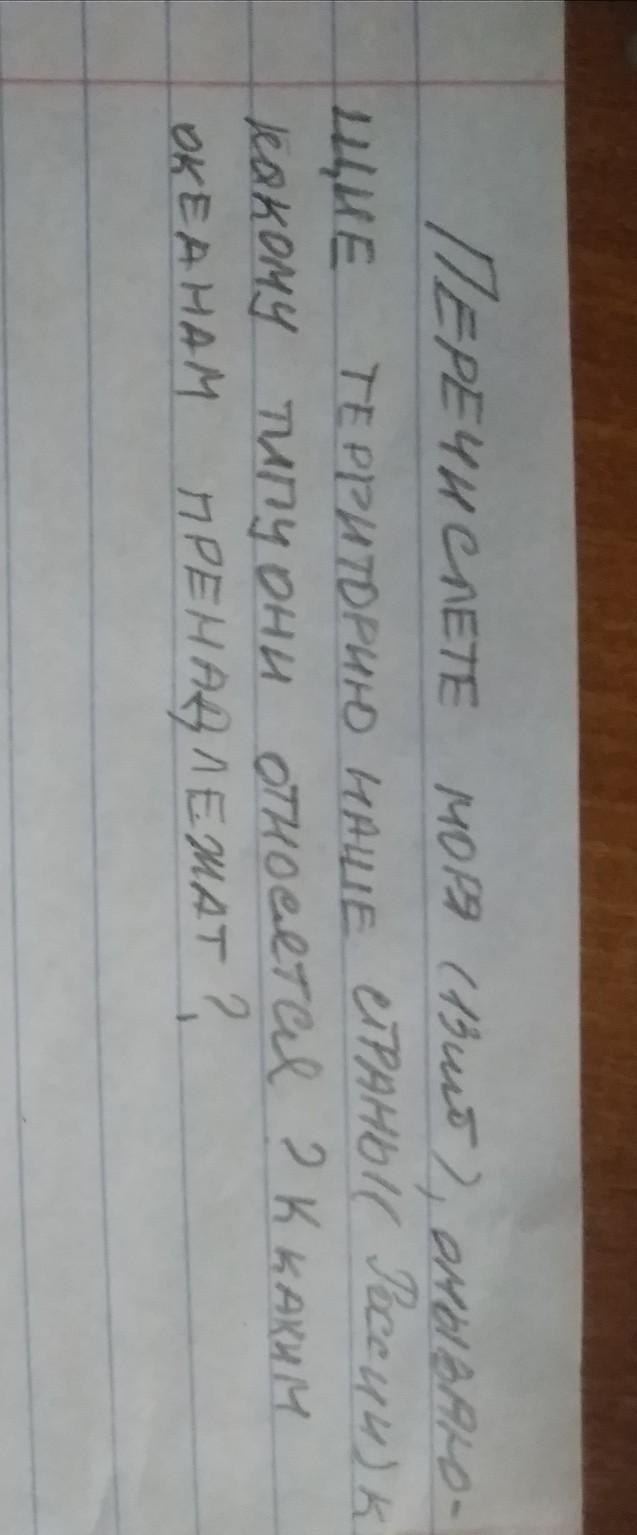 Перечислете моря (13шт), омываю-
щие территорию наше страны( России) к
какому типу они относется? К каким
океанам пренадлежат?